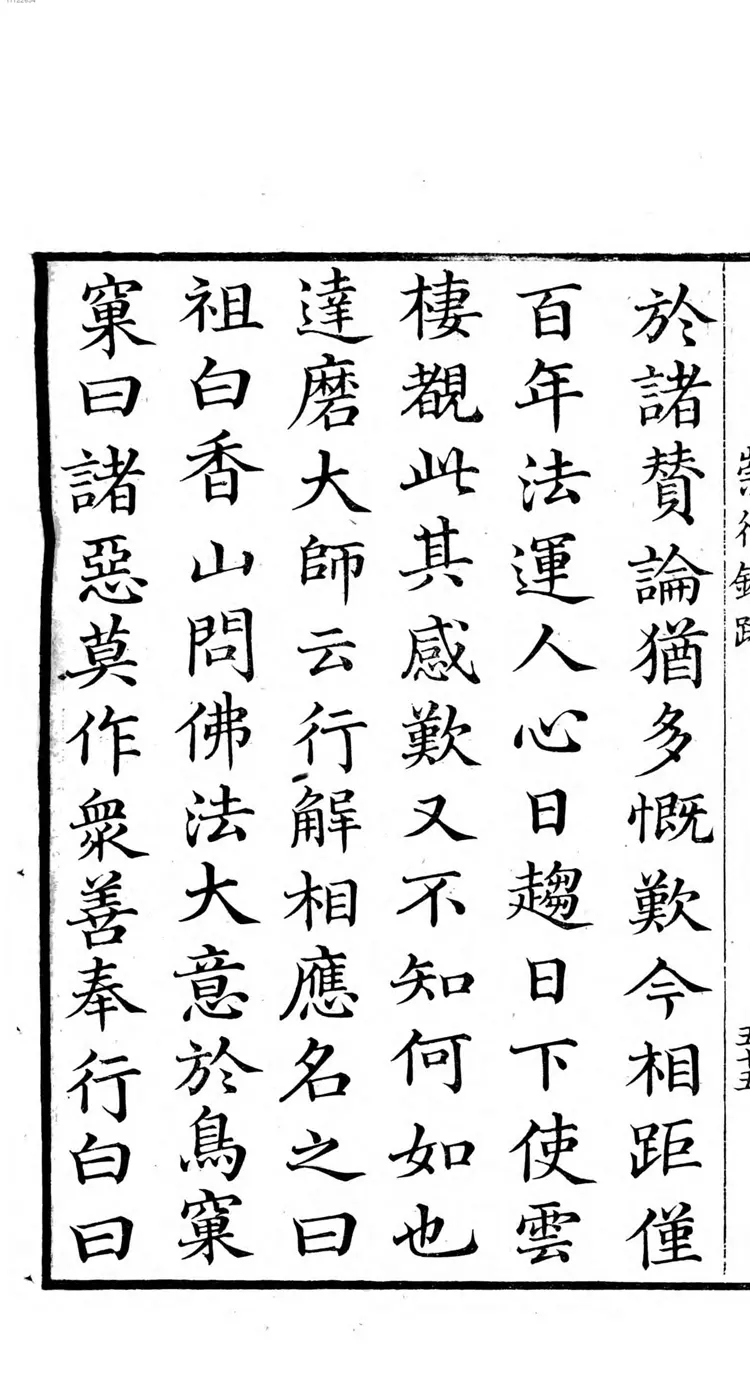 崇行錄跋
五十五
於諸賛論猶多慨歎今相距僅
百年法運人心日趨日下使雲
棲覩此其感歎又不知何如也
達磨大師云行解相應名之曰
祖白香山問佛法大意於鳥窠
窠曰諸惡莫作衆善奉行白曰